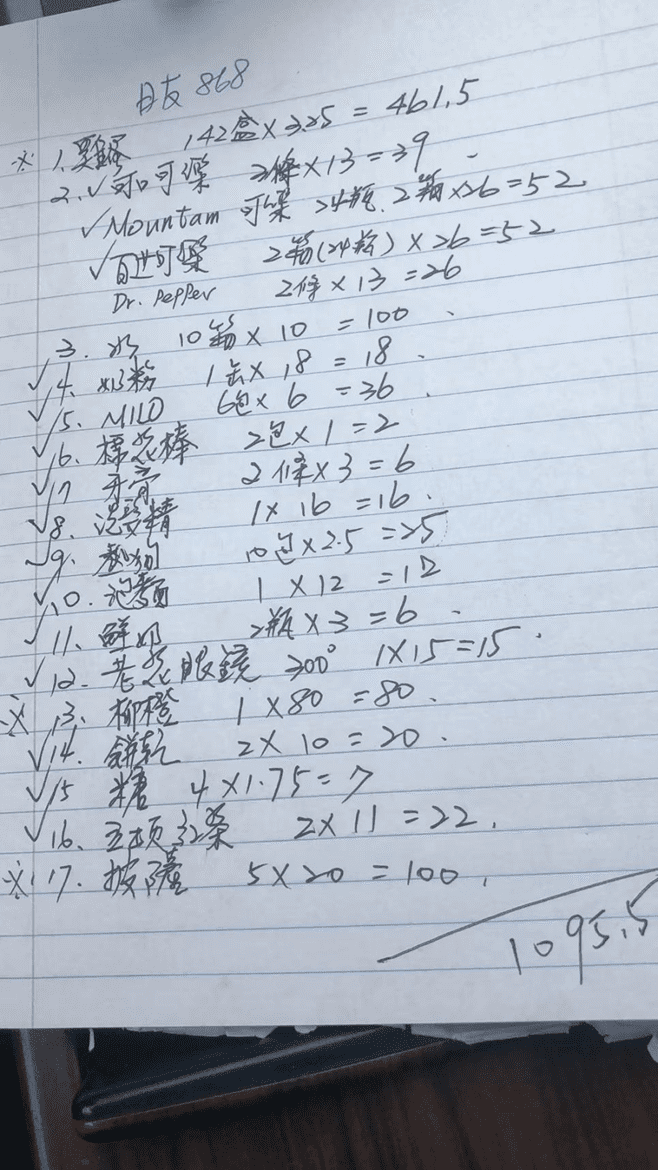 868
※ 1. 142盒×3.25 = 461.5
2. ✓可口可樂 3條×13=39
✓Mountain 可樂 24瓶. 2箱×26=52
✓百世可樂 2箱(24瓶)×26=52
Dr. Pepper 2條×13=26
3. 水 10箱×10 =100
✓4. 奶粉 1缶×18 =18
✓5. MILO 6包×6 =36
✓6. 棉花棒 2包×1=2
✓7 牙膏 2條×3=6
✓8. 1×16=16
✓9. 10包×2.5=25
✓10. 泡麵 1×12 =12
✓11. 鮮奶 2瓶×3=6
✓12. 老花眼鏡 300° 1×15=15
※ 13. 柳橙 1×80=80
✓14. 餅乾 2×10=20
✓15 糖 4×1.75=7
✓16. 2×11=22
※ 17. 披薩 5×20=100
1095.5